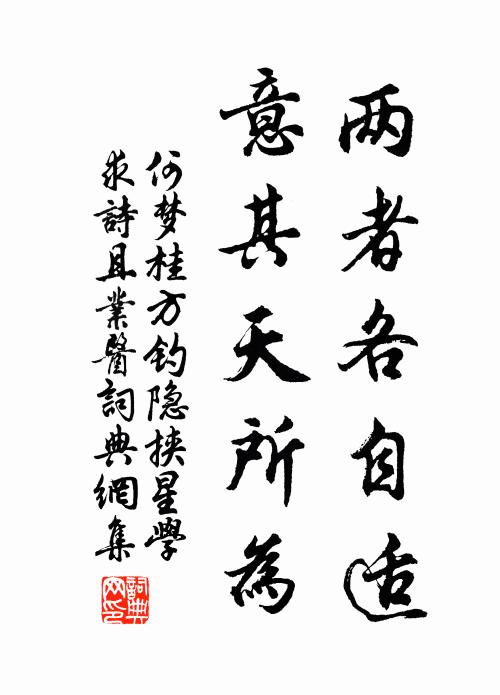 两者各自适
意其天所為
何梦桂方钓隐挟星學
求詩且業醫詞典網集
詞典
网印